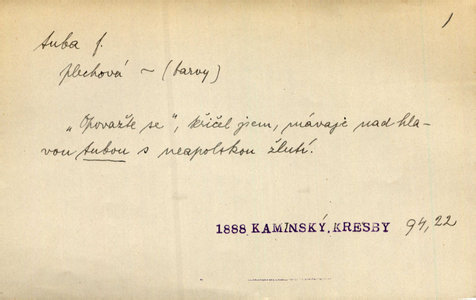 1
tuba f.
plechová ~ (barvy)
„Opovažte se“, křičel jsem, mávaje nad hla-
vou tubou s neapolskou žlutí.
1888 KAMINSKÝ, KRESBY 94,22